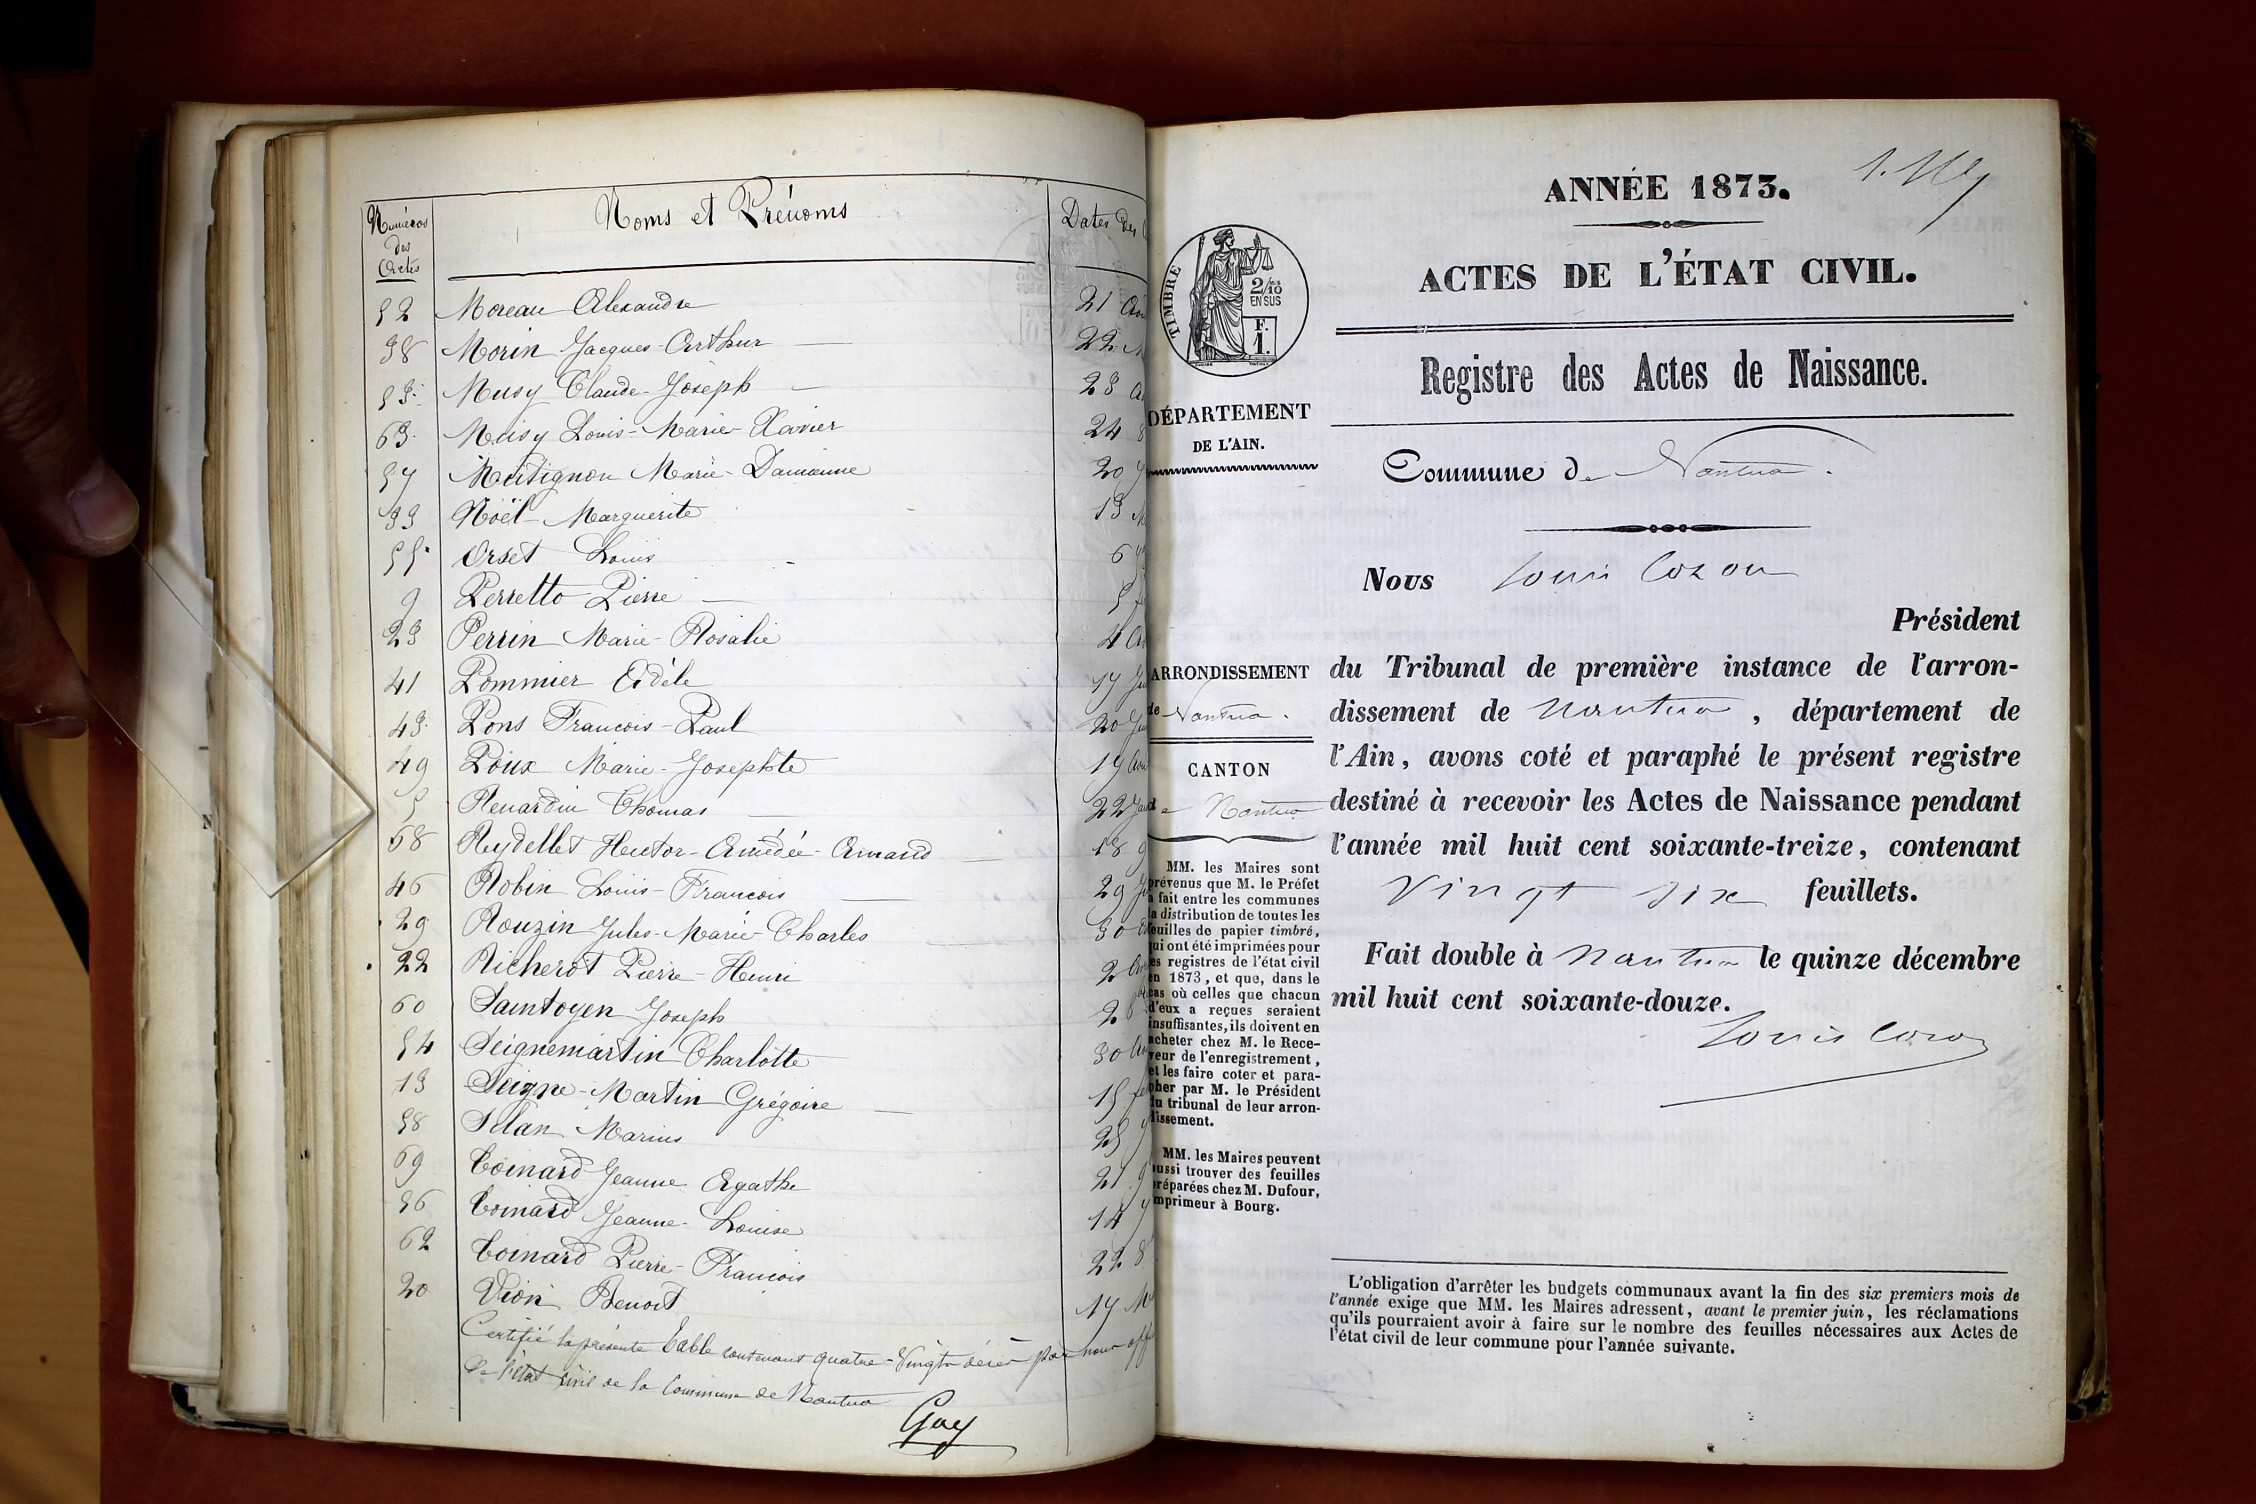 Numéros
des
Actes
Noms et Prénoms
Dates des
52 Moreau Alexandre 21
38 Morin Jacques-Arthur 22
53 Musy Claude-Joseph 23
63 Musy Louis-Marie-Xavier 24
57 Mutignon Marie-Damienne 20
33 Noël Marguerite 13
55 Orset Louis 6
9 Perretto Pierre 5
23 Perrin Marie-Rosalie 4
41 Pommier Adèle 17
43 Pons François-Paul 20
49 Poux Marie-Josephte 19
5 Renardin Thomas 22
68 Reydellet Hector-Amédée-Armand 18
46 Robin Louis-François 29
29 Rouzin Jules-Marie-Charles 30
22 Richerot Pierre-Henri 2
60 Saintoyen Joseph 2
54 Seignemartin Charlotte 30
13 Seigne-Martin Grégoire 15
58 Silan Marius 25
69 Toinard Jeanne Agathe 21
56 Toinard Jeanne-Louise 14
62 Toinard Pierre-François 22
20 Vion Benoit 17
Certifié la présente Table contenant quatre-vingt par nous
de l'état civil de la Commune de Nantua
Gay
ANNÉE 1873.
ACTES DE L'ÉTAT CIVIL.
TIMBRE
2/10
EN SUS
F.
1.
Registre des Actes de Naissance.
DÉPARTEMENT
DE L'AIN.
Commune de Nantua.
Nous Louis Cozon
Président
ARRONDISSEMENT
de Nantua.
CANTON
de Nantua
du Tribunal de première instance de l'arron-
dissement de Nantua, département de
l'Ain, avons coté et paraphé le présent registre
destiné à recevoir les Actes de Naissance pendant
l'année mil huit cent soixante-treize, contenant
vingt six feuillets.
Fait double à Nantua le quinze décembre
mil huit cent soixante-douze.
Louis Cozon
MM. les Maires sont
prévenus que M. le Préfet
a fait entre les communes
la distribution de toutes les
feuilles de papier timbré,
qui ont été imprimées pour
les registres de l'état civil
en 1873, et que, dans le
cas où celles que chacun
d'eux a reçues seraient
insuffisantes, ils doivent en
acheter chez M. le Rece-
veur de l'enregistrement,
et les faire coter et para-
pher par M. le Président
du tribunal de leur arron-
dissement.
MM. les Maires peuvent
aussi trouver des feuilles
préparées chez M. Dufour,
imprimeur à Bourg.
L'obligation d'arrêter les budgets communaux avant la fin des six premiers mois de
l'année exige que MM. les Maires adressent, avant le premier juin, les réclamations
qu'ils pourraient avoir à faire sur le nombre des feuilles nécessaires aux Actes de
l'état civil de leur commune pour l'année suivante.